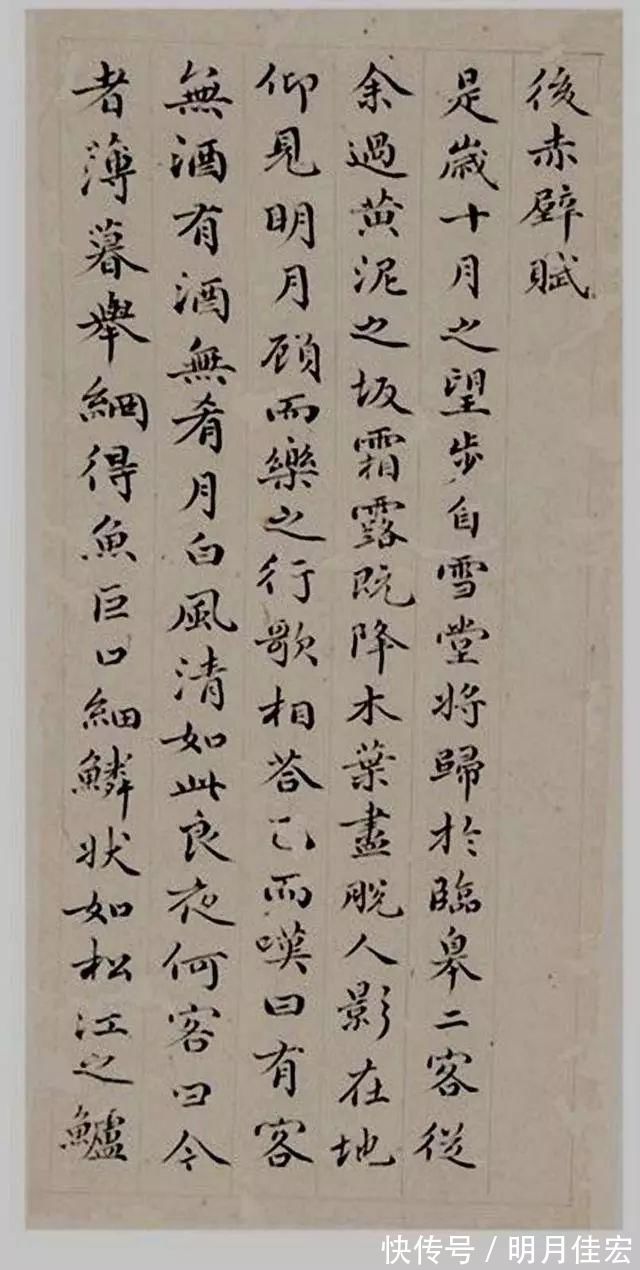 後赤壁賦
是歲十月之望步自雪堂將歸於臨皋二客從
余過黃泥之坂霜露既降木葉盡脫人影在地
仰見明月顧而樂之行歌相答已而嘆曰有客
無酒有酒無肴月白風清如此良夜何客曰今
者薄暮舉網得魚巨口細鱗狀如松江之鱸
快传号 / 明月佳宏